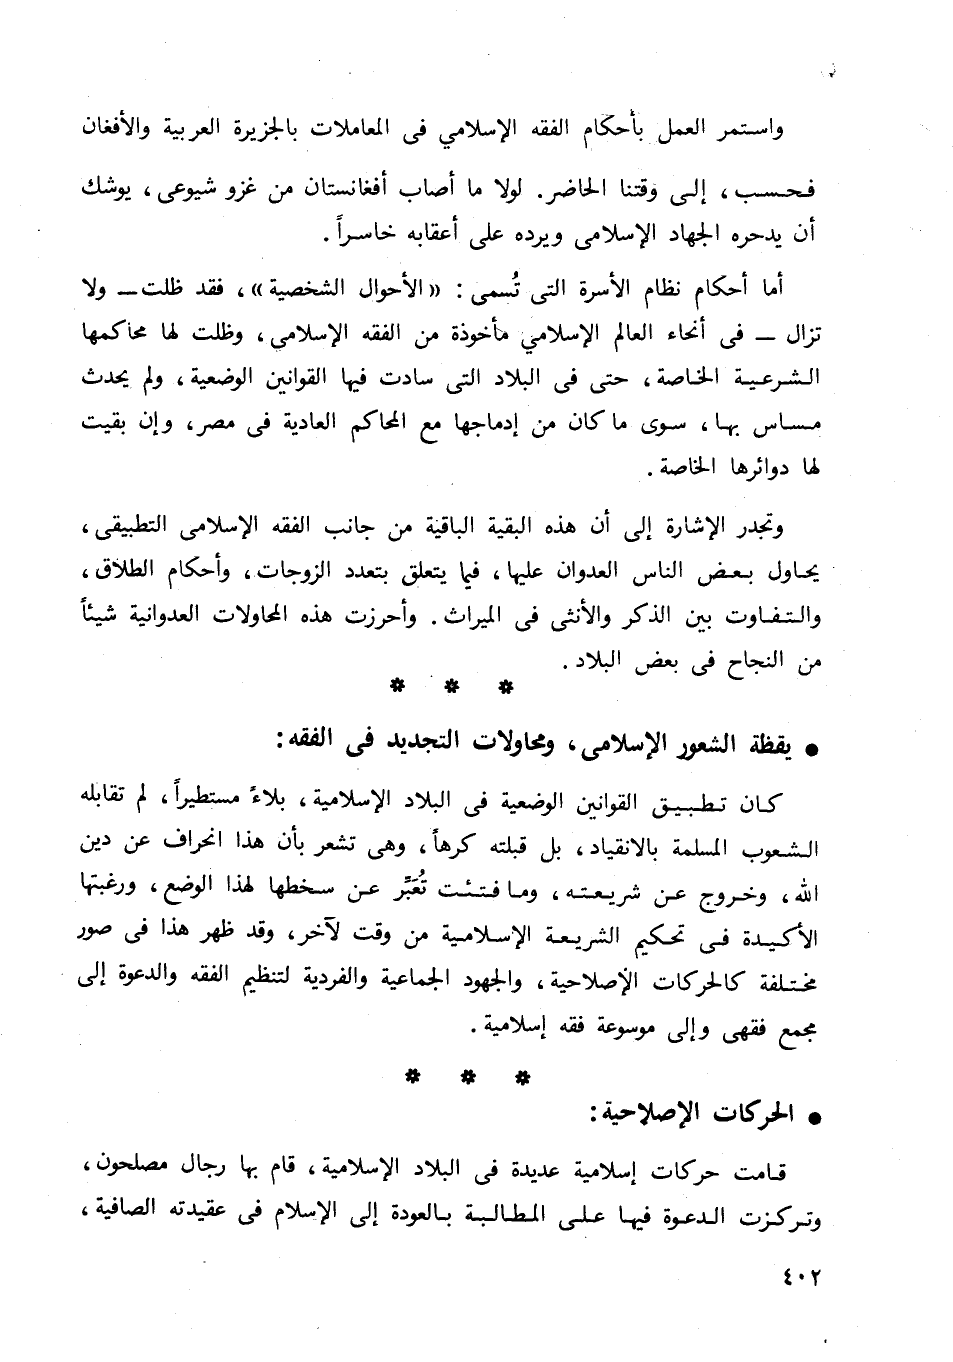 واستمر العمل بأحكام الفقه الإسلامي فى المعاملات بالجزيرة العربية والأفغان
فحسب، إلى وقتنا الحاضر. لولا ما أصاب أفغانستان من غزو شيوعى، يوشك
أن يدحره الجهاد الإسلامى ويرده على أعقابه خاسراً.
أما أحكام نظام الأسرة التى تُسمى: «الأحوال الشخصية»، فقد ظلت — ولا
تزال — فى أنحاء العالم الإسلامي مأخوذة من الفقه الإسلامى، وظلت لها محاكمها
الشرعية الخاصة، حتى فى البلاد التى سادت فيها القوانين الوضعية، ولم يحدث
مساس بها، سوى ما كان من إدماجها مع المحاكم العادية فى مصر، وإن بقيت
لها دوائرها الخاصة.
وتجدر الإشارة إلى أن هذه البقية الباقية من جانب الفقه الإسلامى التطبيقى،
يحاول بعض الناس العدوان عليها، فيما يتعلق بتعدد الزوجات، وأحكام الطلاق،
والتفاوت بين الذكر والأنثى فى الميراث. وأحرزت هذه المحاولات العدوانية شيئاً
من النجاح فى بعض البلاد.
* * *
● يقظة الشعور الإسلامى، ومحاولات التجديد فى الفقه:
كان تطبيق القوانين الوضعية فى البلاد الإسلامية، بلاءً مستطيراً، لم تقابله
الشعوب المسلمة بالانقياد، بل قبلته كرهاً، وهى تشعر بأن هذا انحراف عن دين
الله، وخروج عن شريعته، وما فتئت تُعَبِّر عن سخطها لهذا الوضع، ورغبتها
الأكيدة فى تحكيم الشريعة الإسلامية من وقت لآخر، وقد ظهر هذا فى صور
مختلفة كالحركات الإصلاحية، والجهود الجماعية والفردية لتنظيم الفقه والدعوة إلى
مجمع فقهى وإلى موسوعة فقه إسلامية.
* * *
● الحركات الإصلاحية:
قامت حركات إسلامية عديدة فى البلاد الإسلامية، قام بها رجال مصلحون،
وتركزت الدعوة فيها على المطالبة بالعودة إلى الإسلام فى عقيدته الصافية،
٤٠٢